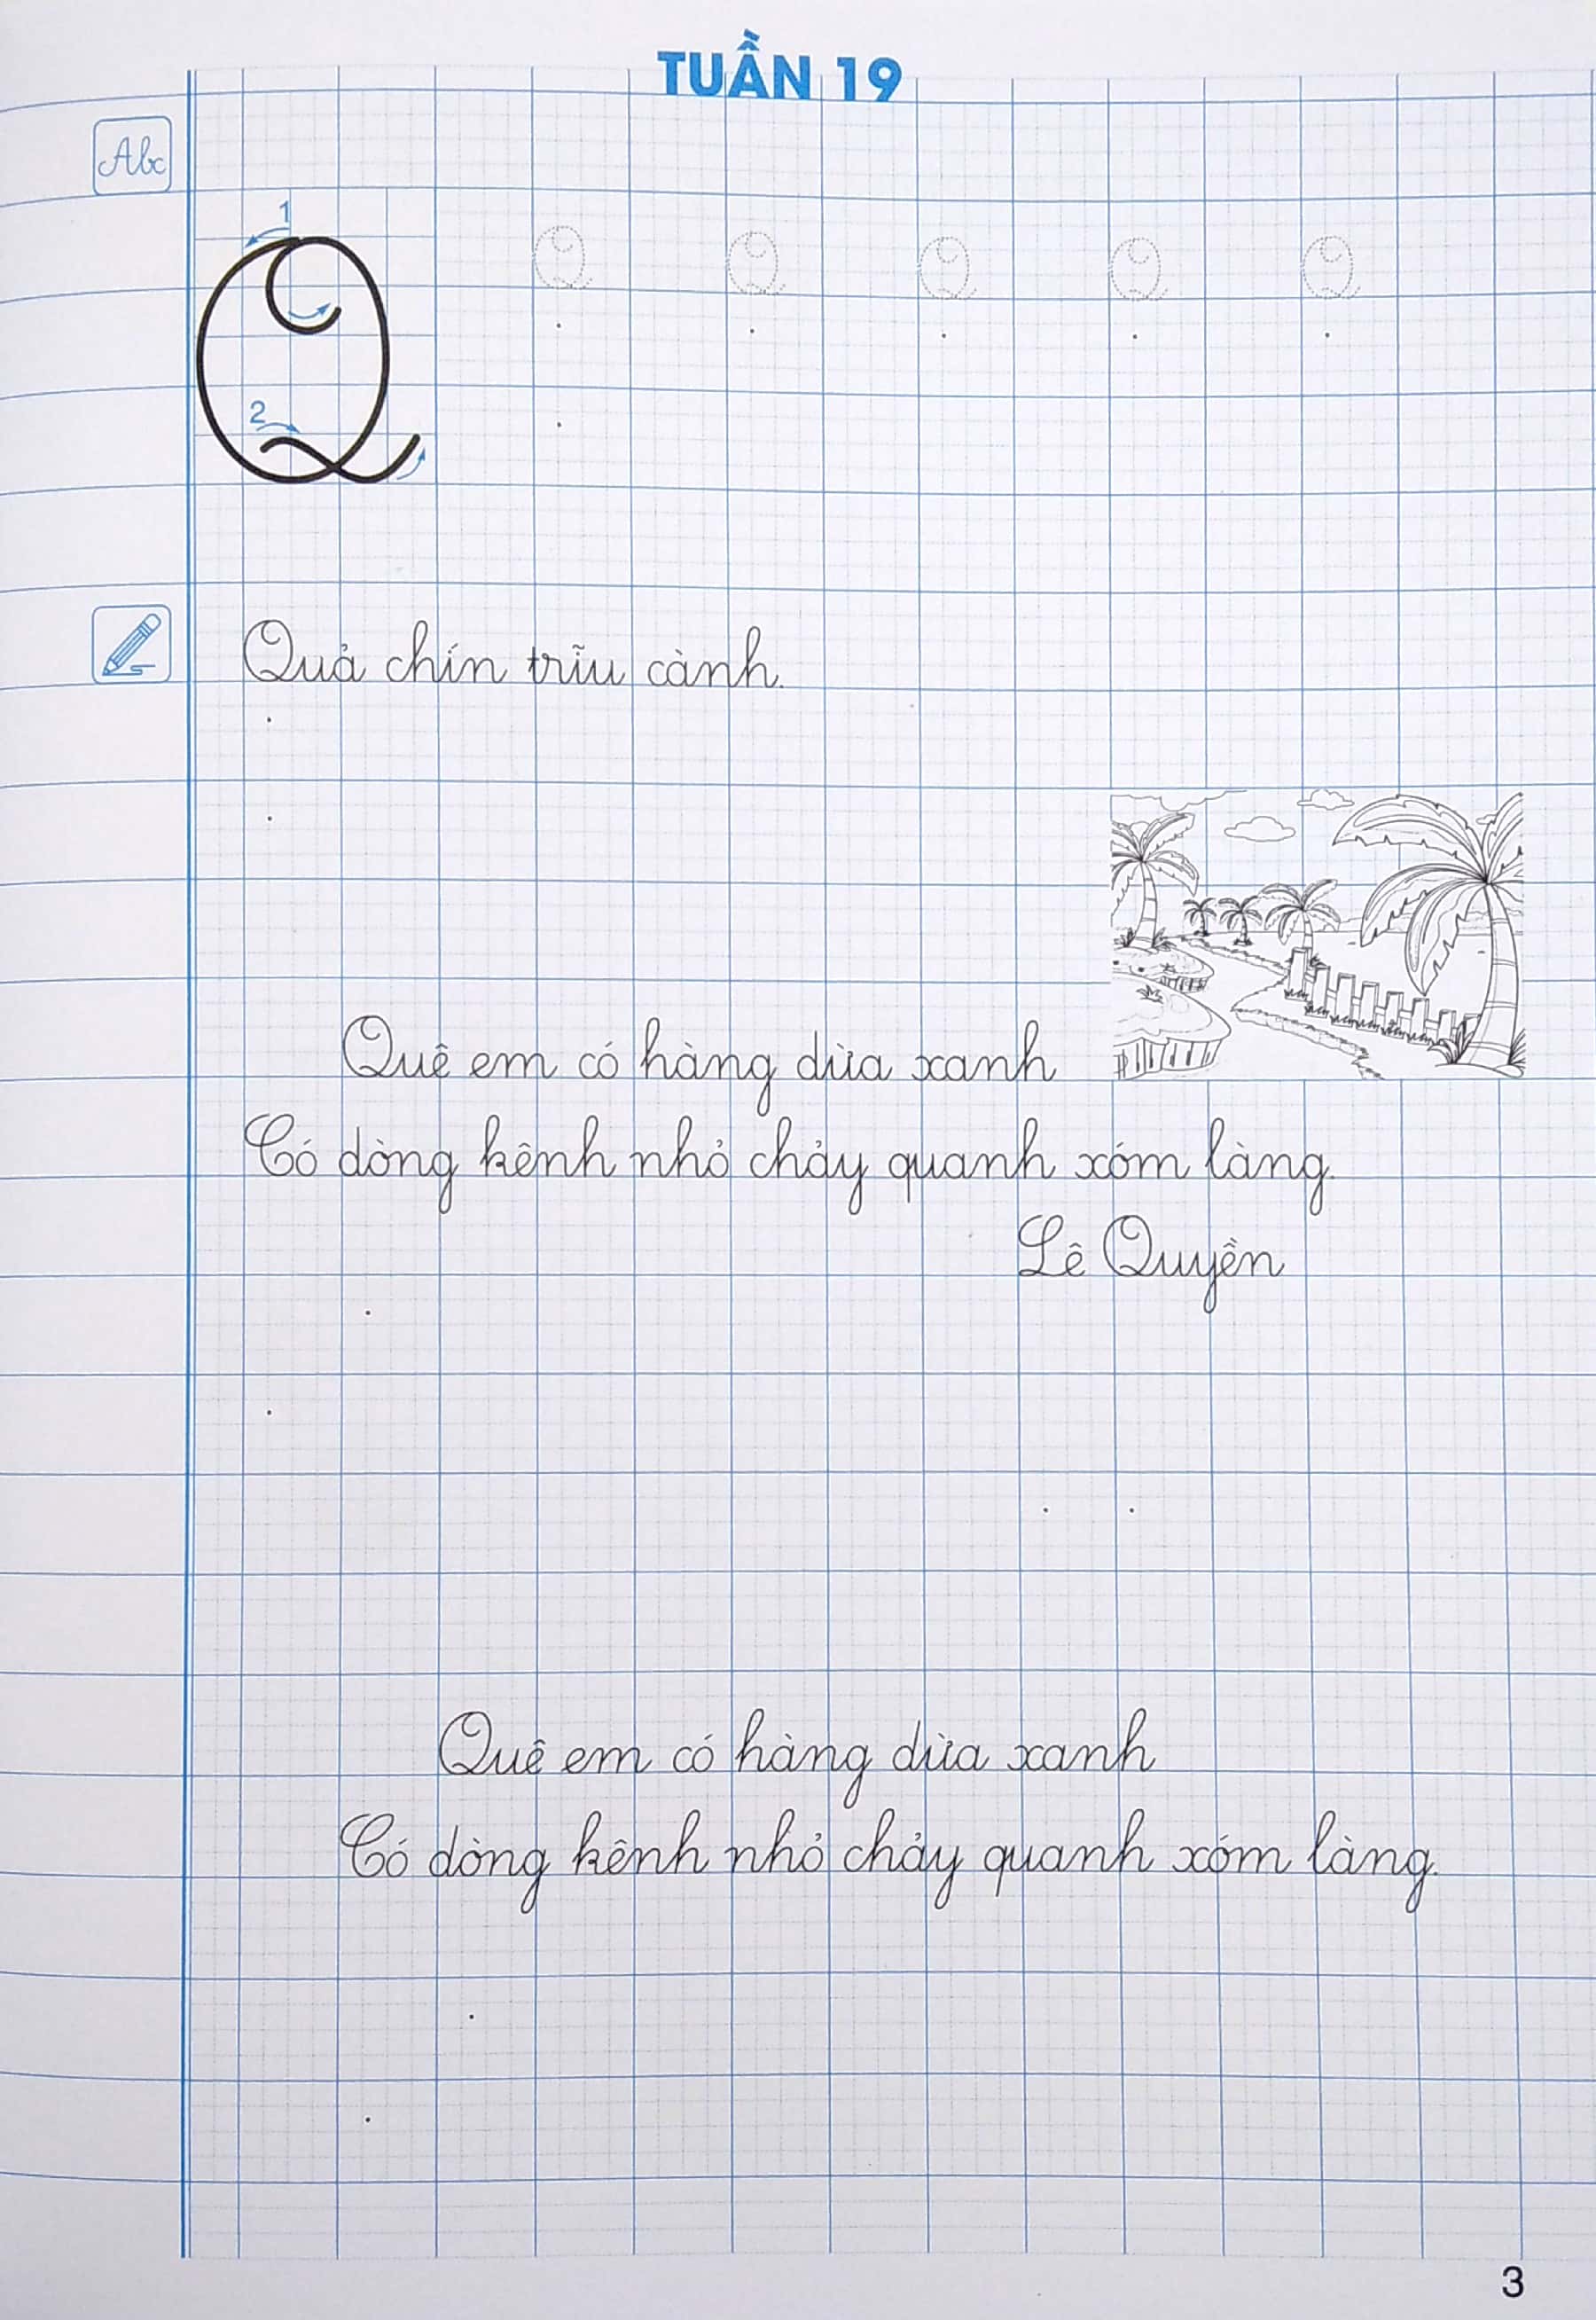 TUẦN 19
Abc
1
2
Q
Q Q Q Q Q
Quả chín trĩu cành.
Quê em có hàng dừa xanh
Có dòng kênh nhỏ chảy quanh xóm làng.
Lê Quyền
Quê em có hàng dừa xanh
Có dòng kênh nhỏ chảy quanh xóm làng.
3